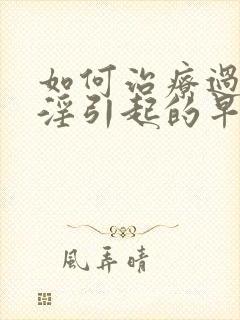 如何治療過
淫引起的早
風弄晴